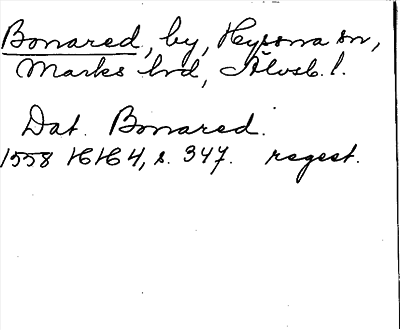 Bonared, by, Hyssna sn,
Marks hd, Älvsb. l.
Dat. Bonared.
1558 16/6 4, s. 347. regest.